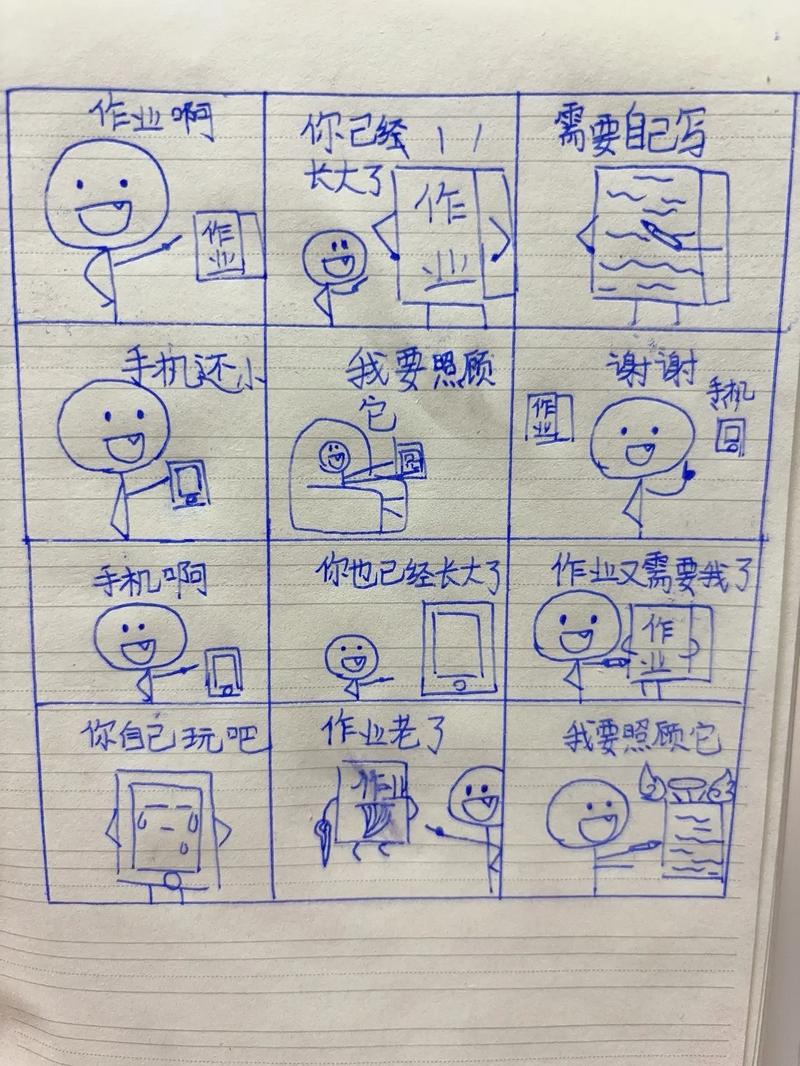 作业啊
作
业
你已经
长大了
作
业
需要自己写
手机还小
我要照顾
它
谢谢
作
业
手机
手机啊
你也已经长大了
作业又需要我了
作
业
你自己玩吧
作业老了
作业
我要照顾它